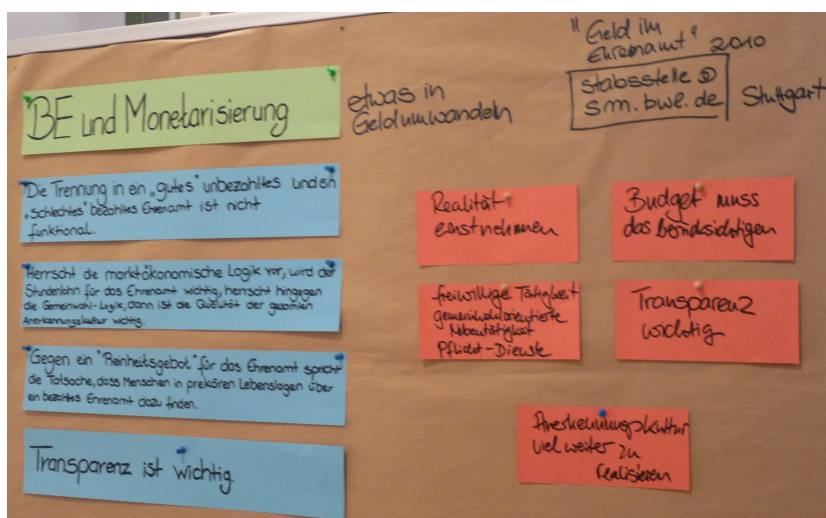 BE und Monetarisierung
etwas in
Geld umwandeln
"Geld im
Ehrenamt" 2010
stabsstelle @
sm.bwl.de
Stuttgart
Die Trennung in ein „gutes" unbezahltes und ein
„schlechtes" bezahltes Ehrenamt ist nicht
funktional.
Herrscht die marktökonomische Logik vor, wird der
Stundenlohn für das Ehrenamt wichtig, herrscht hingegen
die Gemeinwohl-Logik, dann ist die Qualität der gesamten
Anerkennungskultur wichtig.
Gegen ein "Reinheitsgebot" für das Ehrenamt spricht
die Tatsache, dass Menschen in prekären Lebenslagen über
ein bezahltes Ehrenamt dazu finden.
Transparenz ist wichtig.
Realität
ernst nehmen
Budget muss
das berücksichtigen
freiwillige Tätigkeit
gemeinwohlorientierte
Nebentätigkeit
Pflicht-Dienste
Transparenz
wichtig
Anerkennungskultur
viel weiter zu
realisieren